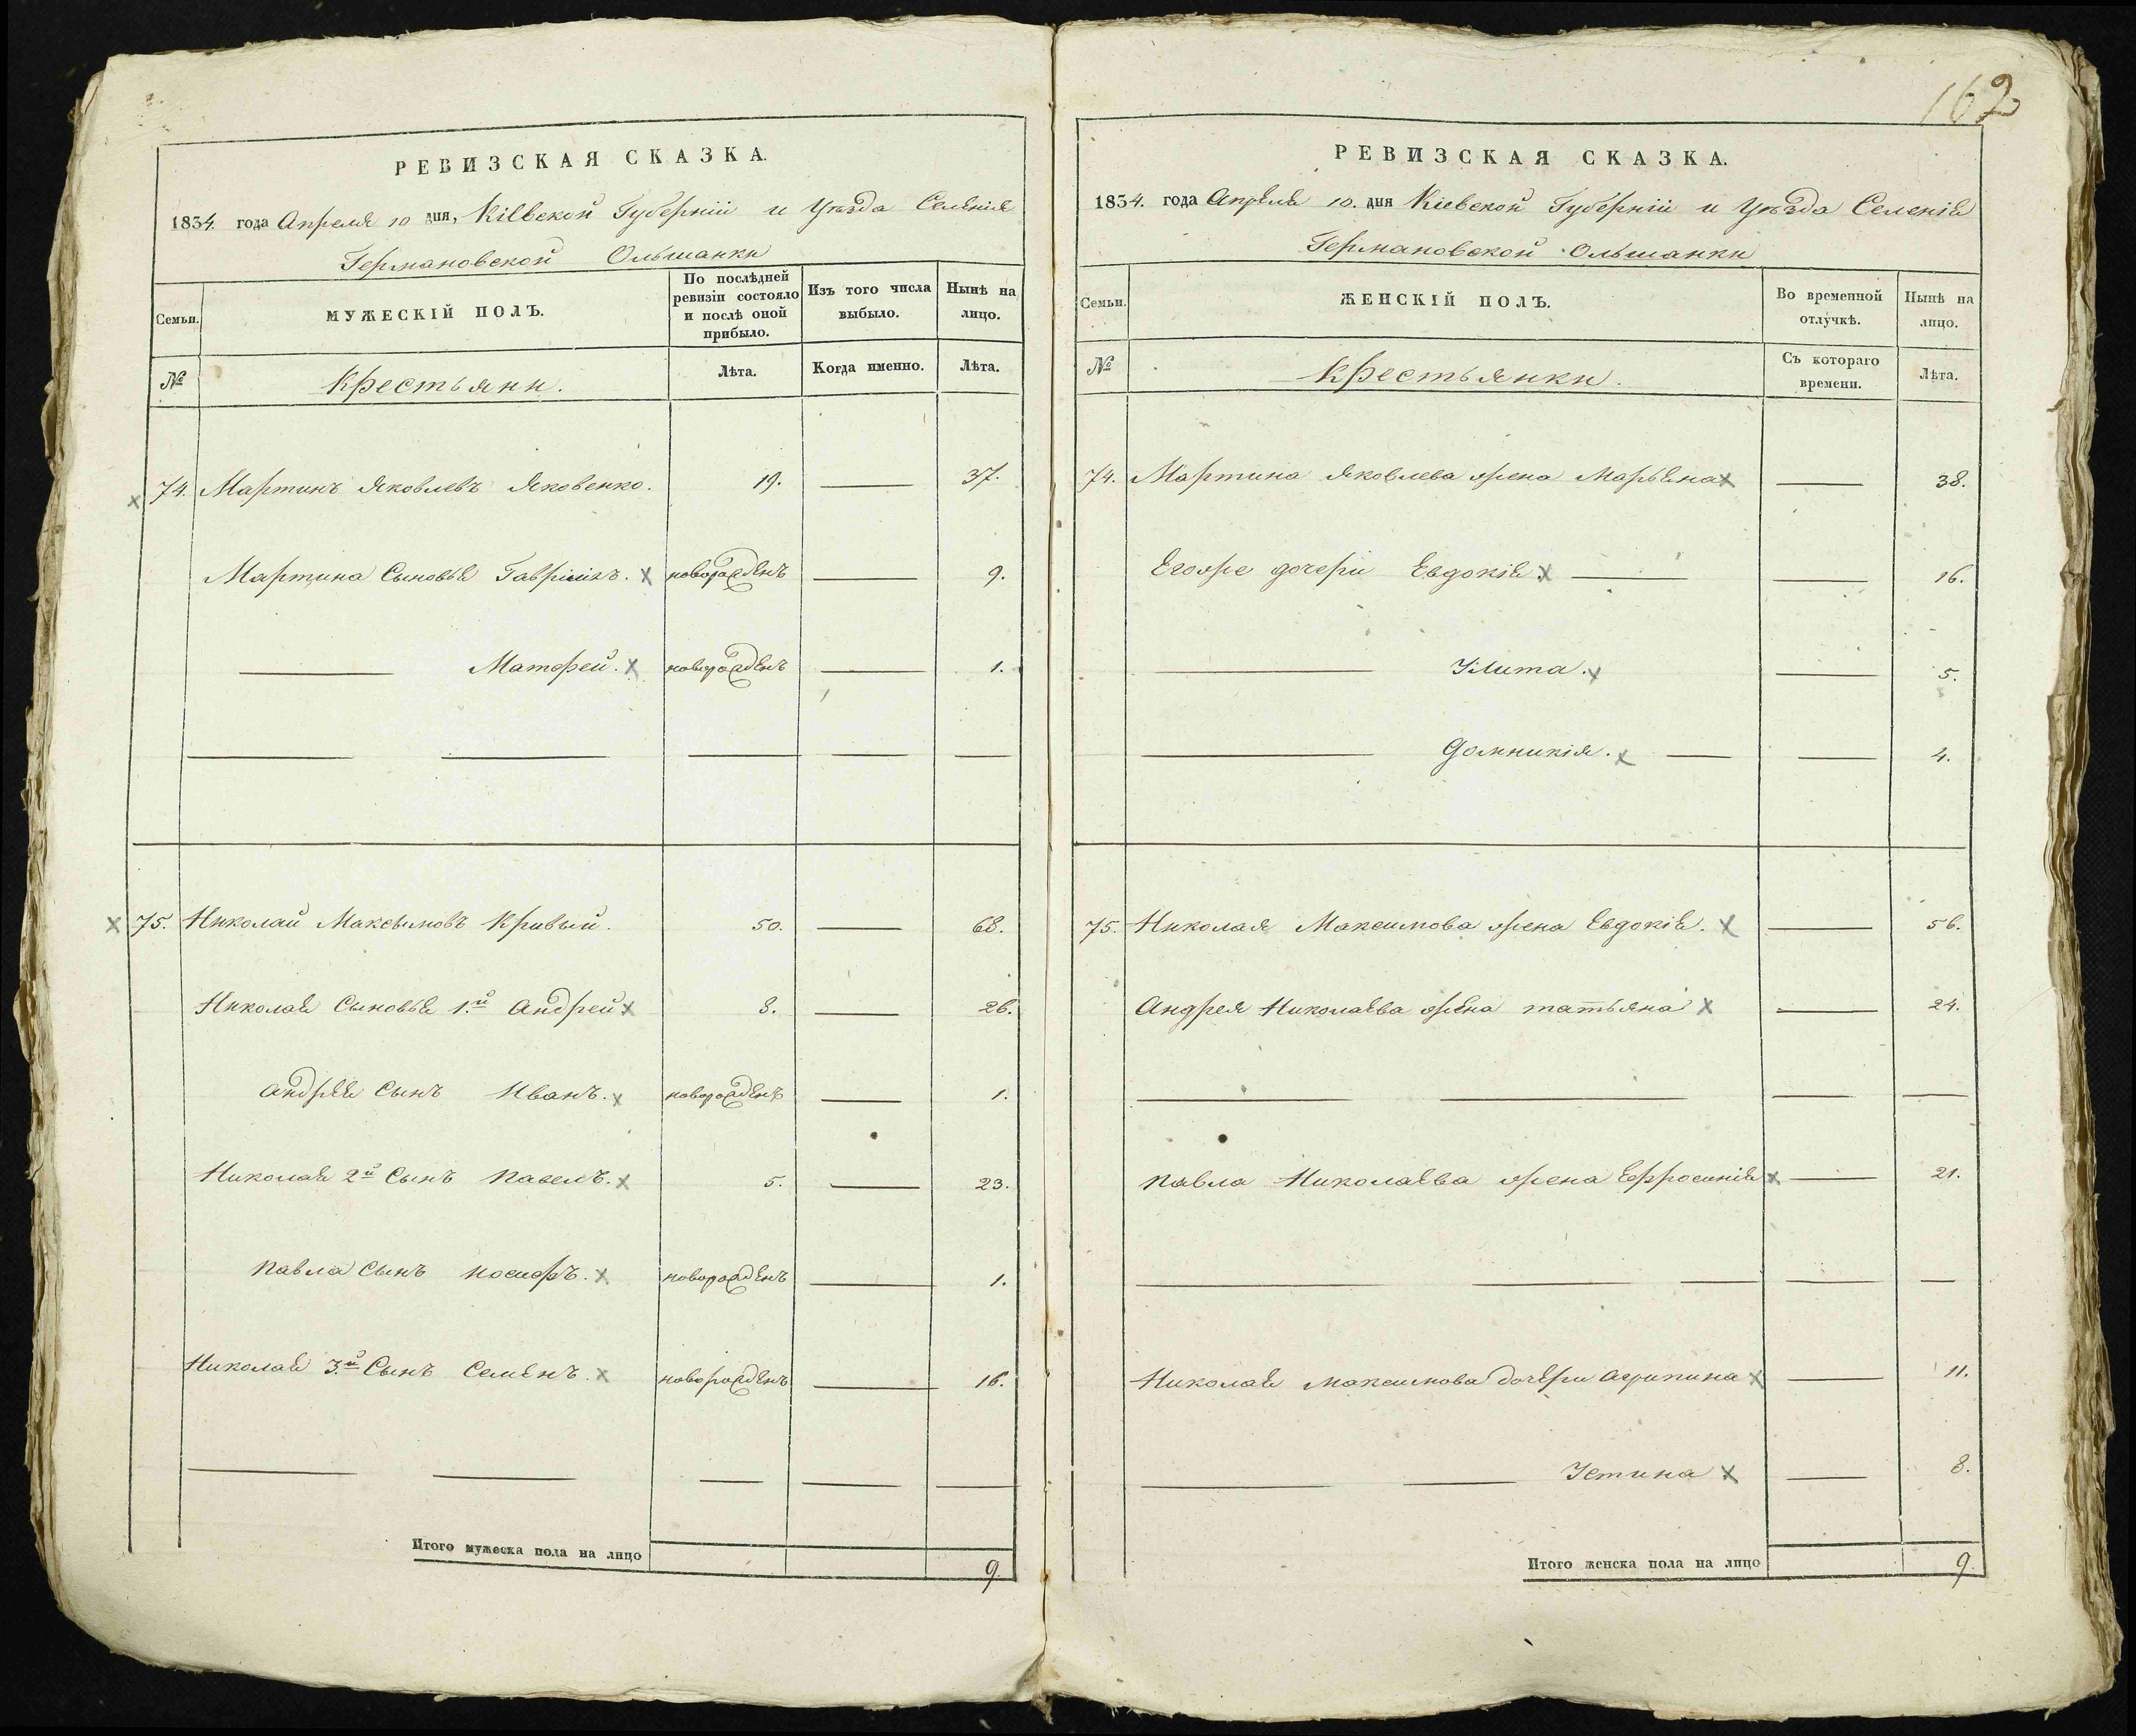 162
РЕВИЗСКАЯ СКАЗКА.
1834. года Апреля 10 дня, Кіевской Губерніи и Уѣзда Селенія
Германовской Ольшанки
Семьи.
МУЖЕСКІЙ ПОЛЪ.
По послѣдней ревизіи состояло и послѣ оной прибыло.
Изъ того числа выбыло.
Нынѣ на лицо.
№
Крестьяни.
Лѣта.
Когда именно.
Лѣта.
74. Мартинъ Яковлевъ Яковенко. 19. — 37.
Мартина Сыновья Гавріилъ. новорожденъ — 9.
— Матфей. новорожденъ — 1.
75. Николай Максимовъ Кривый. 50. — 68.
Николая Сыновья 1.й Андрей 8. — 26.
Андрея Сынъ Иванъ. новорожденъ — 1.
Николая 2й Сынъ Павелъ. 5. — 23.
Павла Сынъ Иосифъ. новорожденъ — 1.
Николая 3.й Сынъ Семенъ. новорожденъ — 16.
Итого мужеска пола на лицо 9.
РЕВИЗСКАЯ СКАЗКА.
1834. года Апреля 10. дня Кіевской Губерніи и Уѣзда Селенія
Германовской Ольшанки
Семьи.
ЖЕНСКІЙ ПОЛЪ.
Во временной отлучкѣ.
Нынѣ на лицо.
№
Крестьянки.
Съ котораго времени.
Лѣта.
74. Мартина Яковлева жена Марьяна — 38.
Егоже дочери Евдокія. — 16.
— Улита. — 5.
— Домникія. — 4.
75. Николая Максимова жена Евдокія. — 56.
Андрея Николаева жена татьяна — 24.
Павла Николаева жена Ефросинія — 21.
Николая Максимова дочери Агрипина — 11.
— Устина — 8.
Итого женска пола на лицо 9.